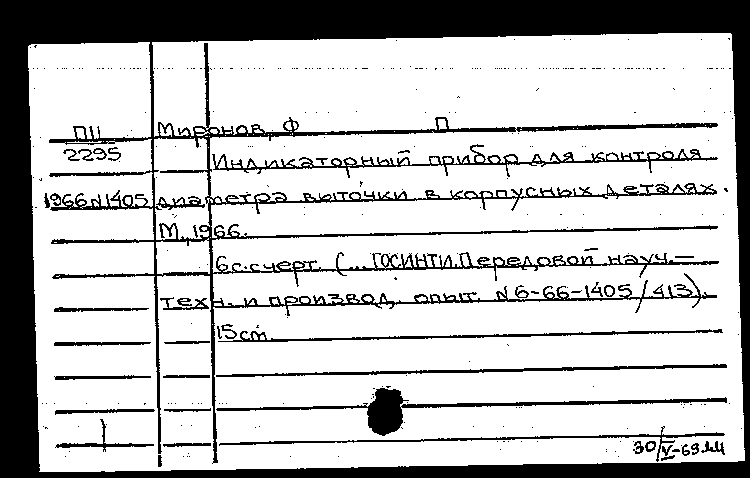 ПЦ Миронов, Ф П
2295 Индикаторный прибор для контроля
1966 N1405 диаметра выточки в корпусных деталях.
М., 1966.
6 с. с черт. (... ГОСИНТИ. Передовой науч.—
техн. и производ. опыт. N 6-66-1405/413).
15 см.
30/V-69